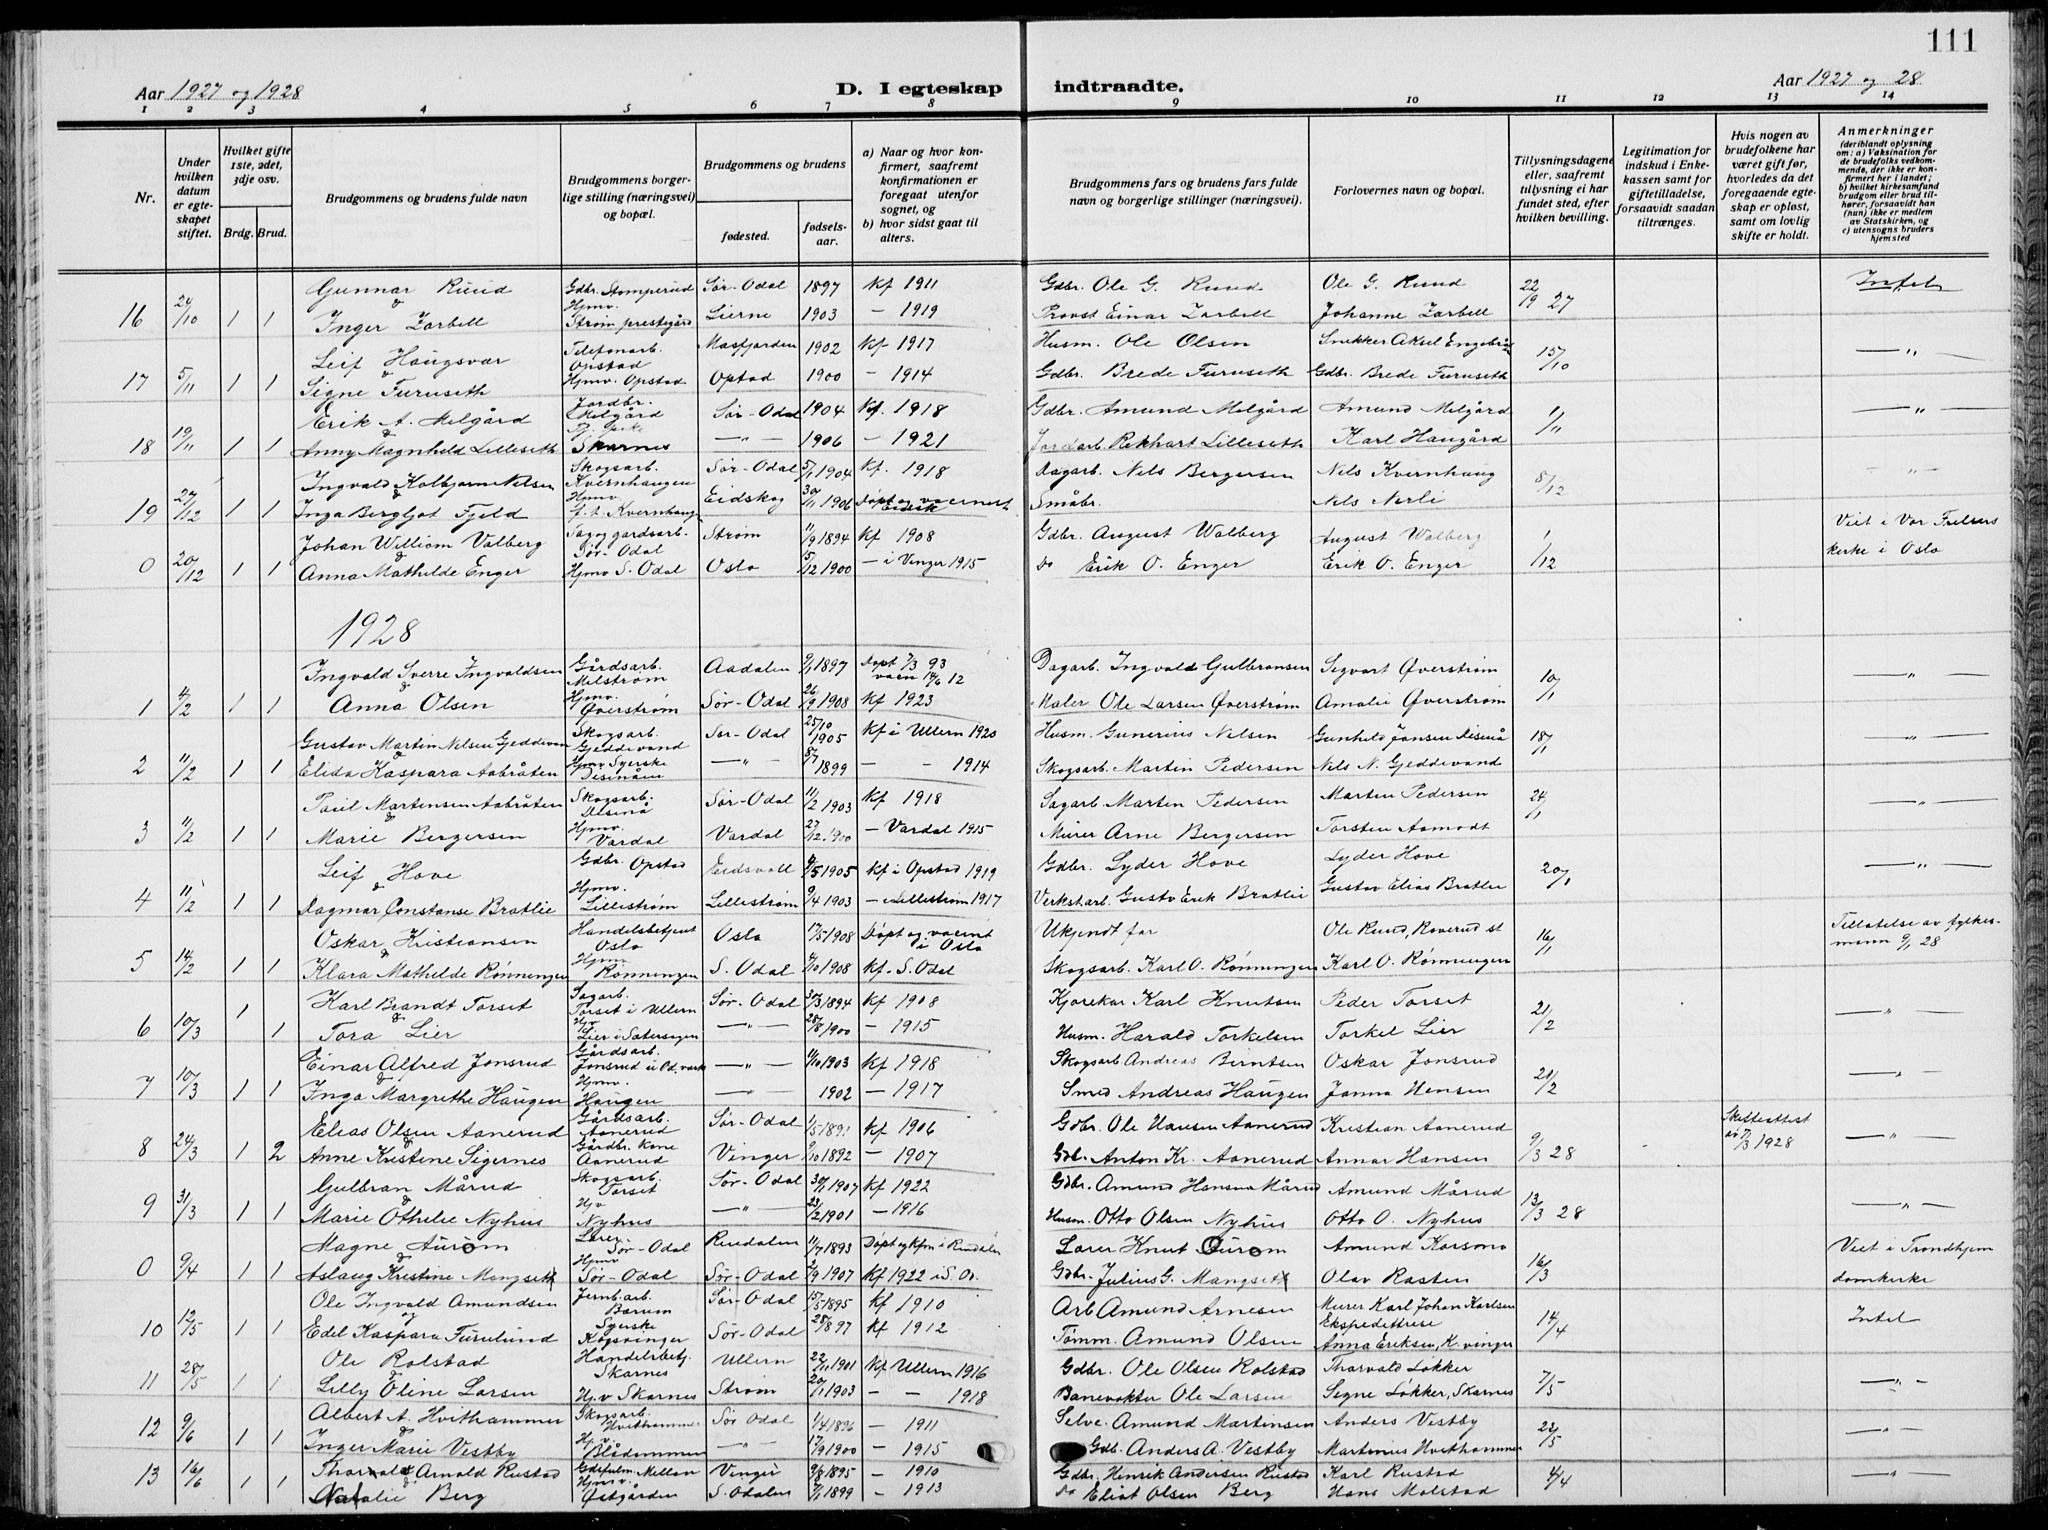 111
Aar 1927 og 1928 D. I egteskap indtraadte. Aar 1927 og 28
1 2 3 4 5 6 7 8 9 10 11 12 13 14
Nr.
Under hvilken datum er egteskapet stiftet.
Hvilket gifte 1ste, 2det, 3dje osv.
Brdg. Brud.
Brudgommens og brudens fulde navn
Brudgommens borgerlige stilling (næringsvei) og bopæl.
Brudgommens og brudens
fødested. fødselsaar.
a) Naar og hvor konfirmert, saafremt konfirmationen er foregaat utenfor sognet, og
b) hvor sidst gaat til alters.
Brudgommens fars og brudens fars fulde navn og borgerlige stillinger (næringsvei).
Forlovernes navn og bopæl.
Tillysningsdagene eller, saafremt tillysning ei har fundet sted, efter hvilken bevilling.
Legitimation for indskud i Enkekassen samt for giftetilladelse, forsaavidt saadan tiltrænges.
Hvis nogen av brudefolkene har været gift før, hvorledes da det foregaaende egteskap er opløst, samt om lovlig skifte er holdt.
Anmerkninger (deriblandt oplysning om: a) Vaksination for de brudefolks vedkommende, der ikke er konfirmert her i landet; b) hvilket kirkesamfund brudgom eller brud tilhører, forsaavidt han (hun) ikke er medlem av Statskirken, og c) utensogns bruders hjemsted
Gunnar Ruud Gdbr. Stomperud Sør-Odal 1897 Kf 1911 Gdbr. Ole G. Ruud Ole G. Ruud 22/9 27 Intet
16 24/10 1 1 & Inger Zarbell Hjmv. Strøm prestegård Lierne 1903 — 1919 Provst Einar Zarbell Johanne Zarbell
Leif Haugsvar Telefonarb. Opstad Masfjorden 1902 Kf 1917 Husm. Ole Olsen Snekker Aksel 15/10 — " —
17 5/11 1 1 & Signe Furuseth Hjmv. Opstad Opstad 1900 — 1914 Gdbr. Brede Furuseth Gdbr. Brede Furuseth
Erik A. Melgård Jordbr. Melgård Sør-Odal 1904 Kf. 1918 Gdbr. Amund Melgård Amund Melgård 1/11 — " —
18 19/11 1 1 & Anny Magnhild Lilleseth Skarnes — " — 1906 — 1921 Jordarb. Rikhart Lilleseth Karl Haugård
Ingvald Kolbjørn Nilsen Skogsarb. Kvernhaugen Sør-Odal 5/1 1904 Kf. 1918 Dagarb. Nils Bergersen Nils Kvernhaug 8/12 — " —
19 27/12 1 1 & Inga Bergljot Fjeld Hjmv. f.t. Kvernhaug Eidskog 30/11 1906 Døpt og vaccinert Småbr. Nils Nerli
Johan William Valberg Sag og gardsarb. Sør-Odal Strøm 11/9 1894 Kf 1908 Gdbr. August Walberg August Walberg 1/12 Viet i Vor Frelsers
0 20/12 1 1 Anna Mathilde Enger Hjmv S. Odal Oslo 5/12 1900 — i Vinger 1915 do Erik O. Enger Erik O. Enger kirke i Oslo
1928
Ingvald Sverre Ingvaldsen Gårdsarb. Milstrøm Aadalen 9/1 1897 Døpt 7/3 93 vacn 14/6 12 Dagarb. Ingvald Gulbransen Sigvart Øverstrøm 10/1 — " —
1 4/2 1 1 & Anna Olsen Hjmv. Øverstrøm Sør-Odal 26/9 1908 Kf 1923 Maler Ole Larsen Øverstrøm Amalie Øverstrøm
Gustav Martin Nilsen Geddevan Skogsarb. Gjeddevand Sør-Odal 25/10 1905 Kf i Ullern 1920 Husm. Gunerius Nilsen Gunhild Jansen Disenå 18/1 — " —
2 11/2 1 1 & Elida Kaspara Aabråten Hjmv Syerske Disenåen — " — 8/7 1899 — — 1914 Skogsarb. Martin Pedersen Nils N. Gjeddevand
Paul Martensen Aabråten Skogsarb. Disenå Sør-Odal 11/2 1903 Kf 1918 Sagarb. Marten Pedersen Marten Pedersen 24/1 — " —
3 11/2 1 1 & Marie Bergersen Hjmv. Vardal Vardal 27/12 1900 — Vardal 1915 Murer Arne Bergersen Torsten Aamodt
Leif Hove Gdbr. Opstad Eidsvoll 9/5 1905 Kf i Opstad 1919 Gdbr. Lyder Hove Lyder Hove 20/1 — " —
4 11/2 1 1 & Dagmar Constanse Bratlie Hjmv. Lillestrøm Lillestrøm 9/4 1903 — i Lillestrøm 1917 Verkstarb. Gustv Erik Bratlie Gustav Elias Bratlie
Oskar Kristiansen Handelsbetjent Oslo Oslo 17/5 1908 Døpt og vaccint i Oslo Ukjendt far Ole Ruud, Roverud st 16/1 Tillatelse av fylkes-
5 14/2 1 1 & Klara Mathilde Rønningen Hjmv. Rønningen S. Odal 7/10 1908 Kf. S. Odal Skogsarb. Karl O. Rønningen Karl O. Rønningen mann 9/1 28
Karl Brandt Torset Sagarb. Torset i Ullern Sør-Odal 30/3 1894 Kf 1908 Kjørekar Karl Knutsen Peder Torset 21/2 — " —
6 10/3 1 1 & Tora Lier Hjv Lier i Sætersigen — " — 28/8 1900 — 1915 Husm. Harald Torkelsen Torkel Lier
Einar Alfred Jonsrud Gårdsarb. Jonsrud — " — 11/10 1903 Kf 1918 Skogsarb Andreas Birntsen Oskar Jonsrud 21/2 — " —
7 10/3 1 1 & Inga Margrethe Haugen Hjmv. Haugen — " — 1902 — 1917 Smed Andreas Haugen Janna Hensen
Elias Olsen Aanerud Gårdsarb. Aanerud Sør-Odal 1/5 1891 Kf 1906 Gdbr. Ole Hansen Aanerud Kristian Aanerud 9/3 28 Skifteattest av 7/3 1928 — " —
8 24/3 1 2 & Anne Kristine Sigernes Gårdbr. kone Aanerud Vinger 9/10 1892 — 1907 Gdb. Anton Kr. Aanerud Annar Hansen
Gulbran Mårud Skogsarb. Torset Sør-Odal 30/11 1907 Kf 1922 Gdbr. Amund Hansen Mårud Amund Mårud 13/3 28 — " —
9 31/3 1 1 & Marie Othelie Nyhus Hjv Nyhus — " — 23/2 1901 — 1916 Husm. Otto Olsen Nyhus Otto O. Nyhus
Magne Aurom Lærer Sør-Odal Rindalen 11/7 1893 Døpt og kfm i Rindalen Lærer Knut Ourom Amund Korsmo 16/3 Viet i Trondhjem
0 9/4 1 1 & Aslaug Kristine Mengseth Hjmv Sør-Odal Sør-Odal 2/9 1907 Kf 1922 i S. Od. Gdbr. Julius G. Mangseth Olav Rasten domkirke
Ole Ingvald Amundsen Jernb. arb. Bærum Sør-Odal 15/5 1895 Kf 1910 Arb Amund Arnesen Murer Karl Johan Karlsen 14/4 Intet
10 12/5 1 1 og Edel Kaspara Furulund Syerske Kogsvinger Sør-Odal 28/8 97 Kf 1912 Tømm. Amund Olsen Ekspeditrise Anna Eriksen, K. vinger
Ole Rolstad Handelsbetj. Skarnes Ullern 22/11 1901 Kf Ullern 1916 Gdbr. Ole Olsen Rolstad Thorvald Løkker 7/5 — " —
11 28/5 1 1 & Lilly Oline Larsen Hj.v Skarnes Strøm 20/1 1903 — — 1918 Banevokter Ole Larsen Signe Løkker, Skarnes
Albert A. Hvithammer Skogsarb. Hvithammer Sør Odal 1/4 1896 — 1911 Selve. Amund Martinsen Anders Vestby 22/5 — " —
12 9/6 1 1 & Inger Marie Vestby Hj.v. Blådammen — " — 17/9 1900 — 1915 Gdb. Anders A. Vestby Martinius Hvithammer
13 16/6 1 1 Thorvald Arnold Rustad Vinger 9/8 1895 — 1910 Gdbr. Henrik Andersen Rustad Karl Rustad 4/4 — " —
& Natalie Berg Hjmv. Østgården S. Odalen 7/1 1899 — 1913 do Eliot Olsen Berg Hans Molstad